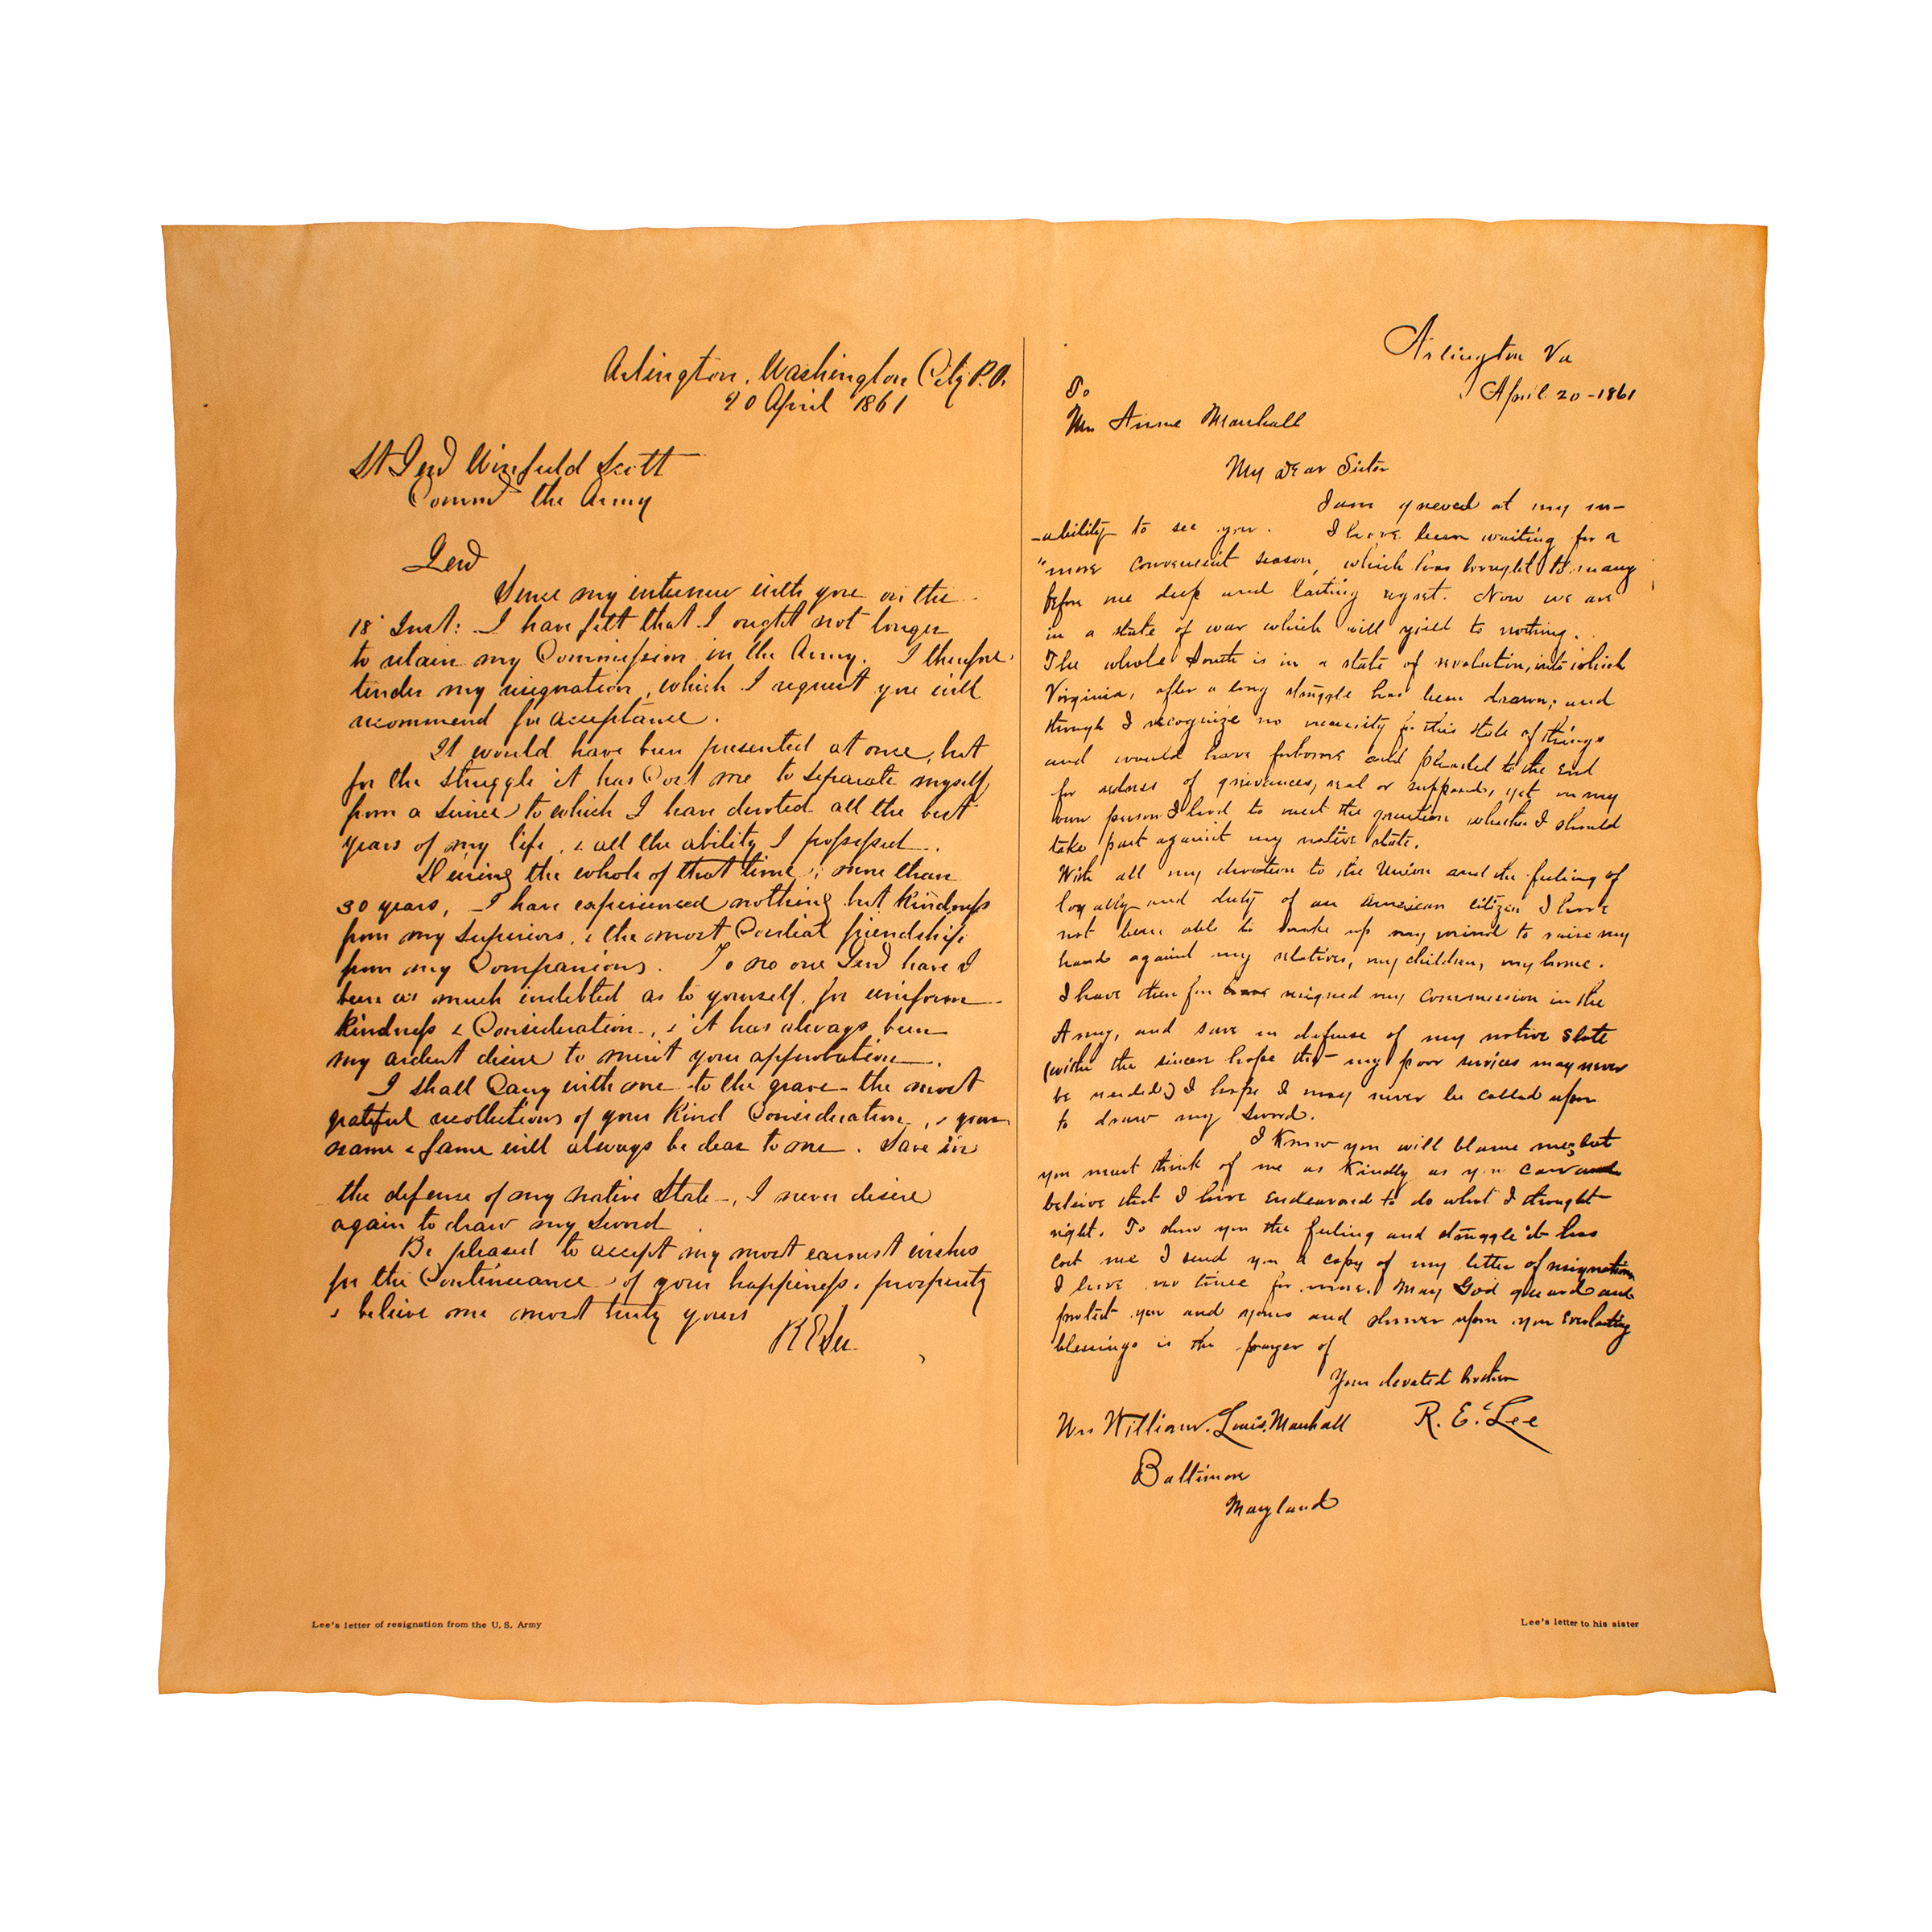 Arlington, Washington City P.O.
20 April 1861
Lt Genl Winfield Scott
Commd the Army
Genl
Since my interview with you on the
18 Inst: I have felt that I ought not longer
to retain my Commission in the Army. I therefore
tender my resignation, which I request you will
recommend for acceptance.
It would have been presented at once, but
for the struggle it has Cost me to separate myself
from a service to which I have devoted all the best
years of my life, & all the ability I possessed.
During the whole of that time, & more than
30 years, I have experienced nothing but kindness
from my superiors, & the most Cordial friendship
from my Companions. To no one Genl have I
been as much indebted as to yourself for uniform
kindness & Consideration, & it has always been
my ardent desire to merit your approbation.
I shall Carry with me to the grave the most
grateful recollections of your kind Consideration, & your
name & fame will always be dear to me. Save in
the defense of my native State, I never desire
again to draw my sword
Be pleased to accept my most earnest wishes
for the Continuance of your happiness & prosperity
& believe me most truly yours
R E Lee
Lee's letter of resignation from the U. S. Army
Arlington Va
April 20-1861
To
Mrs Anne Marshall
My dear Sister
I am grieved at my in-
-ability to see you. I have been waiting for a
"more convenient season, which has brought to many
before me deep and lasting regret. Now we are
in a state of war which will yield to nothing.
The whole South is in a state of revolution, into which
Virginia, after a long struggle has been drawn; and
though I recognize no necessity for this state of things
and would have forborne and pleaded to the end
for redress of grievances, real or supposed, yet in my
own person I had to meet the question whether I should
take part against my native state.
With all my devotion to the Union and the feeling of
loyalty and duty of an American citizen I have
not been able to make up my mind to raise my
hand against my relatives, my children, my home.
I have therefore have resigned my commission in the
Army, and save in defense of my native State
(with the sincere hope that my poor services may never
be needed) I hope I may never be called upon
to draw my sword.
I know you will blame me; but
you must think of me as kindly as you can and
believe that I have endeavored to do what I thought
right. To show you the feeling and struggle it has
cost me I send you a copy of my letter of resignation
I have no time for more. May God guard and
protect you and yours and shower upon you everlasting
blessings is the prayer of
Your devoted brother
R. E. Lee
Mrs William Louis Marshall
Baltimore
Maryland
Lee's letter to his sister